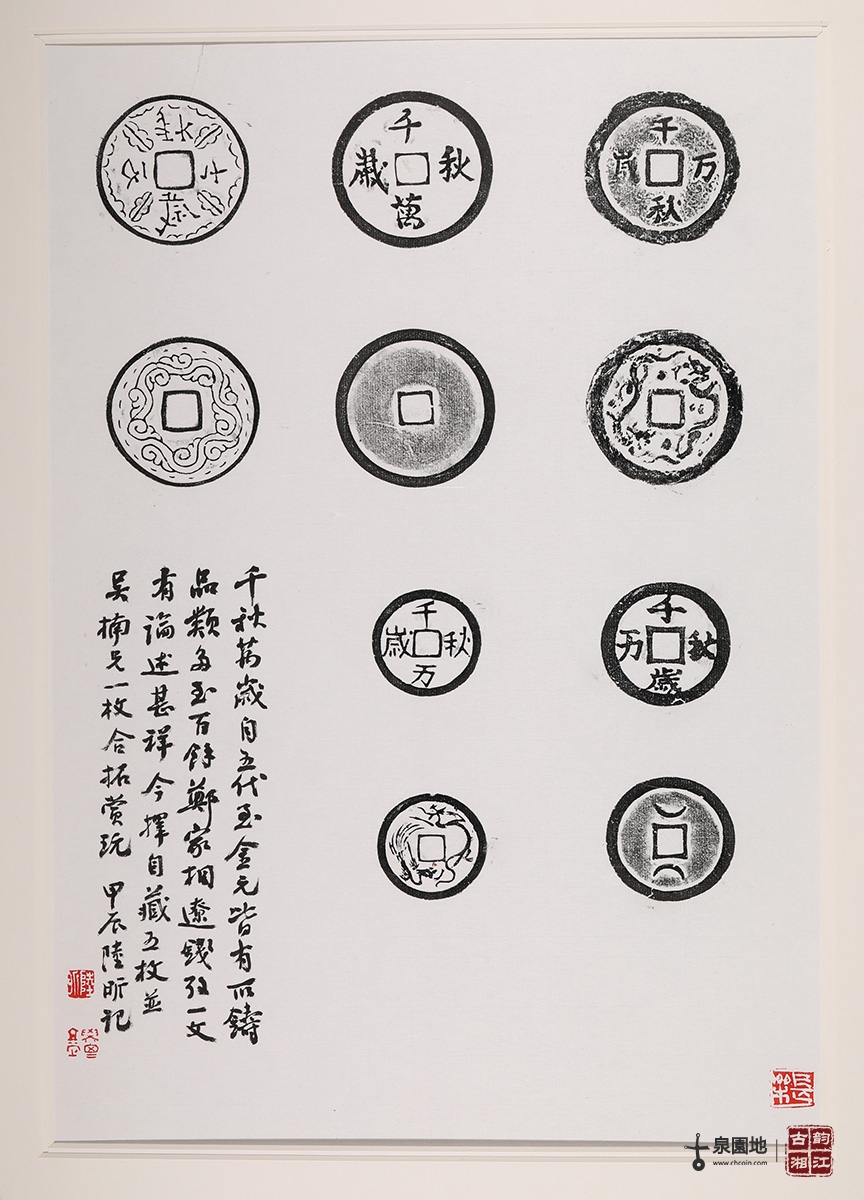 千万秋歲
千秋萬歲
千秋歲万
千秋万歲
千秋萬歲自五代至金元皆有所鑄
品類多至百餘鄭家相遼錢攷一文
有論述甚祥今擇自藏五枚並
吴楠兄一枚合拓賞玩 甲辰陸昕記
陸昕
泉園地
www.chcoin.com
韵江古湘